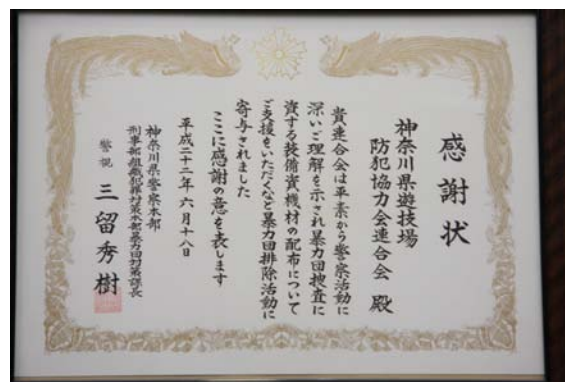 感謝状
神奈川県遊技場
防犯協力会連合会 殿
貴連合会は平素から警察活動に
深いご理解を示され暴力団捜査に
資する装備資機材の配布について
ご支援をいただくなど暴力団排除活動に
寄与されました
ここに感謝の意を表します
平成二十二年六月十八日
神奈川県警察本部
刑事部組織犯罪対策本部暴力団対策課長
警視 三留秀樹